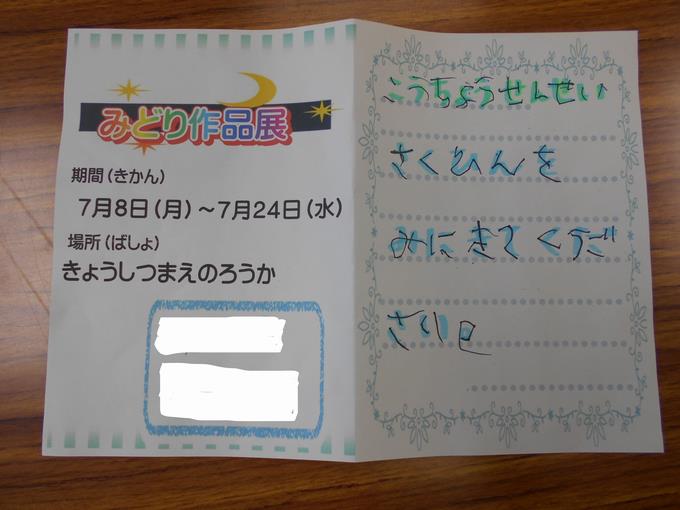 みどり作品展
期間(きかん)
7月8日(月)~7月24日(水)
場所(ばしょ)
きょうしつまえのろうか
こうちょうせんせい
さくひんを
みにきてくだ
さい